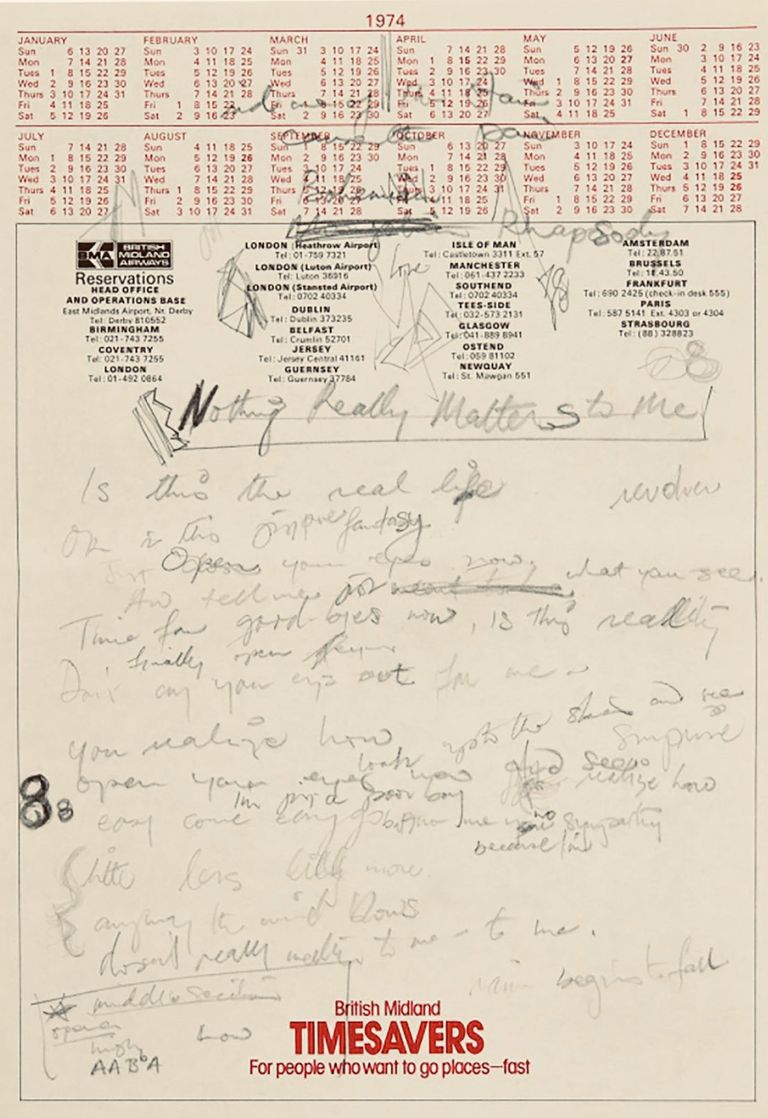 1974
JANUARY
Sun 6 13 20 27
Mon 7 14 21 28
Tues 1 8 15 22 29
Wed 2 9 16 23 30
Thurs 3 10 17 24 31
Fri 4 11 18 25
Sat 5 12 19 26
FEBRUARY
Sun 3 10 17 24
Mon 4 11 18 25
Tues 5 12 19 26
Wed 6 13 20 27
Thurs 7 14 21 28
Fri 1 8 15 22
Sat 2 9 16 23
MARCH
Sun 31 3 10 17 24
Mon 4 11 18 25
Tues 5 12 19 26
Wed 6 13 20 27
Thurs 7 14 21 28
Fri 1 8 15 22 29
Sat 2 9 16 23 30
APRIL
Sun 7 14 21 28
Mon 1 8 15 22 29
Tues 2 9 16 23 30
Wed 3 10 17 24
Thurs 4 11 18 25
Fri 5 12 19 26
Sat 6 13 20 27
MAY
Sun 5 12 19 26
Mon 6 13 20 27
Tues 7 14 21 28
Wed 1 8 15 22 29
Thurs 2 9 16 23 30
Fri 3 10 17 24 31
Sat 4 11 18 25
JUNE
Sun 30 2 9 16 23
Mon 3 10 17 24
Tues 4 11 18 25
Wed 5 12 19 26
Thurs 6 13 20 27
Fri 7 14 21 28
Sat 1 8 15 22 29
JULY
Sun 7 14 21 28
Mon 1 8 15 22 29
Tues 2 9 16 23 30
Wed 3 10 17 24 31
Thurs 4 11 18 25
Fri 5 12 19 26
Sat 6 13 20 27
AUGUST
Sun 4 11 18 25
Mon 5 12 19 26
Tues 6 13 20 27
Wed 7 14 21 28
Thurs 1 8 15 22 29
Fri 2 9 16 23 30
Sat 3 10 17 24 31
SEPTEMBER
Sun 1 8 15 22 29
Mon 2 9 16 23 30
Tues 3 10 17 24
Wed 4 11 18 25
Thurs 5 12 19 26
Fri 6 13 20 27
Sat 7 14 21 28
OCTOBER
Sun 6 13 20 27
Mon 7 14 21 28
Tues 1 8 15 22 29
Wed 2 9 16 23 30
Thurs 3 10 17 24 31
Fri 4 11 18 25
Sat 5 12 19 26
NOVEMBER
Sun 3 10 17 24
Mon 4 11 18 25
Tues 5 12 19 26
Wed 6 13 20 27
Thurs 7 14 21 28
Fri 1 8 15 22 29
Sat 2 9 16 23 30
DECEMBER
Sun 1 8 15 22 29
Mon 2 9 16 23 30
Tues 3 10 17 24 31
Wed 4 11 18 25
Thurs 5 12 19 26
Fri 6 13 20 27
Sat 7 14 21 28
Bohemian
Rhapsody
BMA BRITISH MIDLAND AIRWAYS
Reservations
HEAD OFFICE
AND OPERATIONS BASE
East Midlands Airport, Nr. Derby
Tel: Derby 810552
BIRMINGHAM
Tel: 021-743 7255
COVENTRY
Tel: 021-743 7255
LONDON
Tel: 01-492 0864
LONDON (Heathrow Airport)
Tel: 01-759 7321
LONDON (Luton Airport)
Tel: Luton 36916
LONDON (Stansted Airport)
Tel: 0702 40334
DUBLIN
Tel: Dublin 373235
BELFAST
Tel: Crumlin 52701
JERSEY
Tel: Jersey Central 41161
GUERNSEY
Tel: Guernsey 37784
Love
ISLE OF MAN
Tel: Castletown 3311 Ext. 57
MANCHESTER
Tel: 061-437 2233
SOUTHEND
Tel: 0702 40334
TEES-SIDE
Tel: 032-573 2131
GLASGOW
Tel: 041-889 8941
OSTEND
Tel: 059 81102
NEWQUAY
Tel: St. Mawgan 551
AMSTERDAM
Tel: 22.87.51
BRUSSELS
Tel: 18.43.50
FRANKFURT
Tel: 690 2425 (check-in desk 555)
PARIS
Tel: 587 5141 Ext. 4303 or 4304
STRASBOURG
Tel: (88) 328823
Nothing Really Matters to Me
Is this the real life
Or is this fantasy
Just Open your eyes now, what you see
And tell me
Time for good-byes now, is this reality
finally open
Don't cry your eyes out for me
you realize how
look up to the skies and see
surprise
open your eyes now and realize how
I'm just a poor boy
easy come easy go no sympathy
because I'm
8 8
little less little more
anyway the wind blows
doesn't really matter to me - to me.
middle section
begins to fall
open
high
how
AABA
British Midland
TIMESAVERS
For people who want to go places—fast